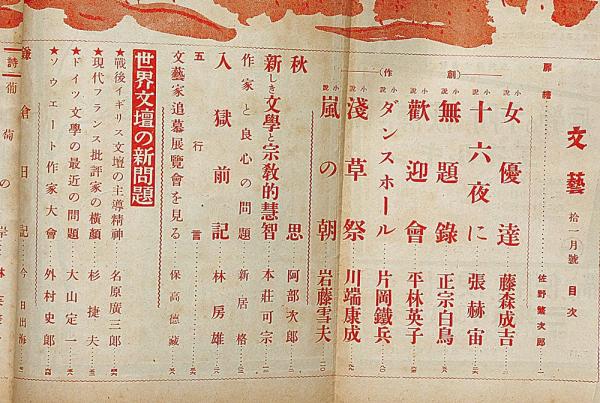 文藝 拾一月號 目次
扉繪 佐野繁次郎
(創作)
小説 女優達 藤森成吉
小説 十六夜に 張赫宙
小説 無題錄 正宗白鳥
小説 歡迎會 平林英子
小説 ダンスホール 片岡鐵兵
小説 淺草祭 川端康成
小説 嵐の朝 岩藤雪夫
秋思 阿部次郎
新しき文學と宗敎的慧智 本莊可宗
作家と良心の問題 新居格
入獄前記 林房雄
五行言
文藝家追慕展覽會を見る 保高德藏
世界文壇の新問題
★戰後イギリス文壇の主導精神 名原廣三郎
★現代フランス批評家の橫顏 杉捷夫
★ドイツ文學の最近の問題 大山定一
★ソウエート作家大會 外村史郎
鎌倉日記 今日出海
詩 葡萄の岸